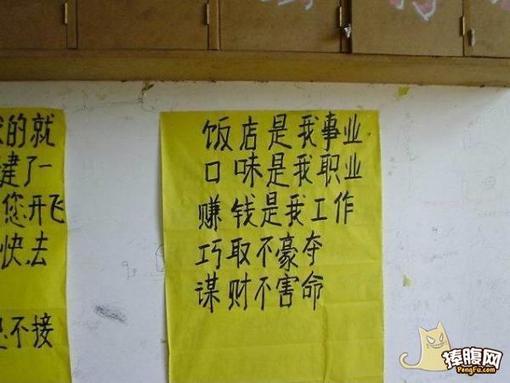 的就
建了一
您开飞
快去
不接
饭店是我事业
口味是我职业
赚钱是我工作
巧取不豪夺
谋财不害命
捧腹网
PengFu.com